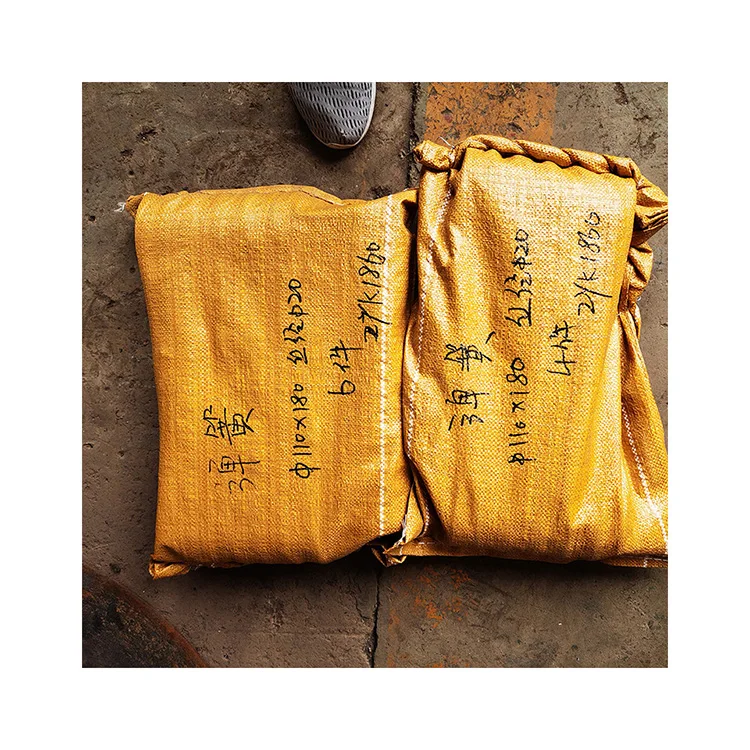 弹簧
φ110×180 丝径φ20
6件
2YK1860
弹簧
φ110×180 丝径φ20
4件
2YK1860